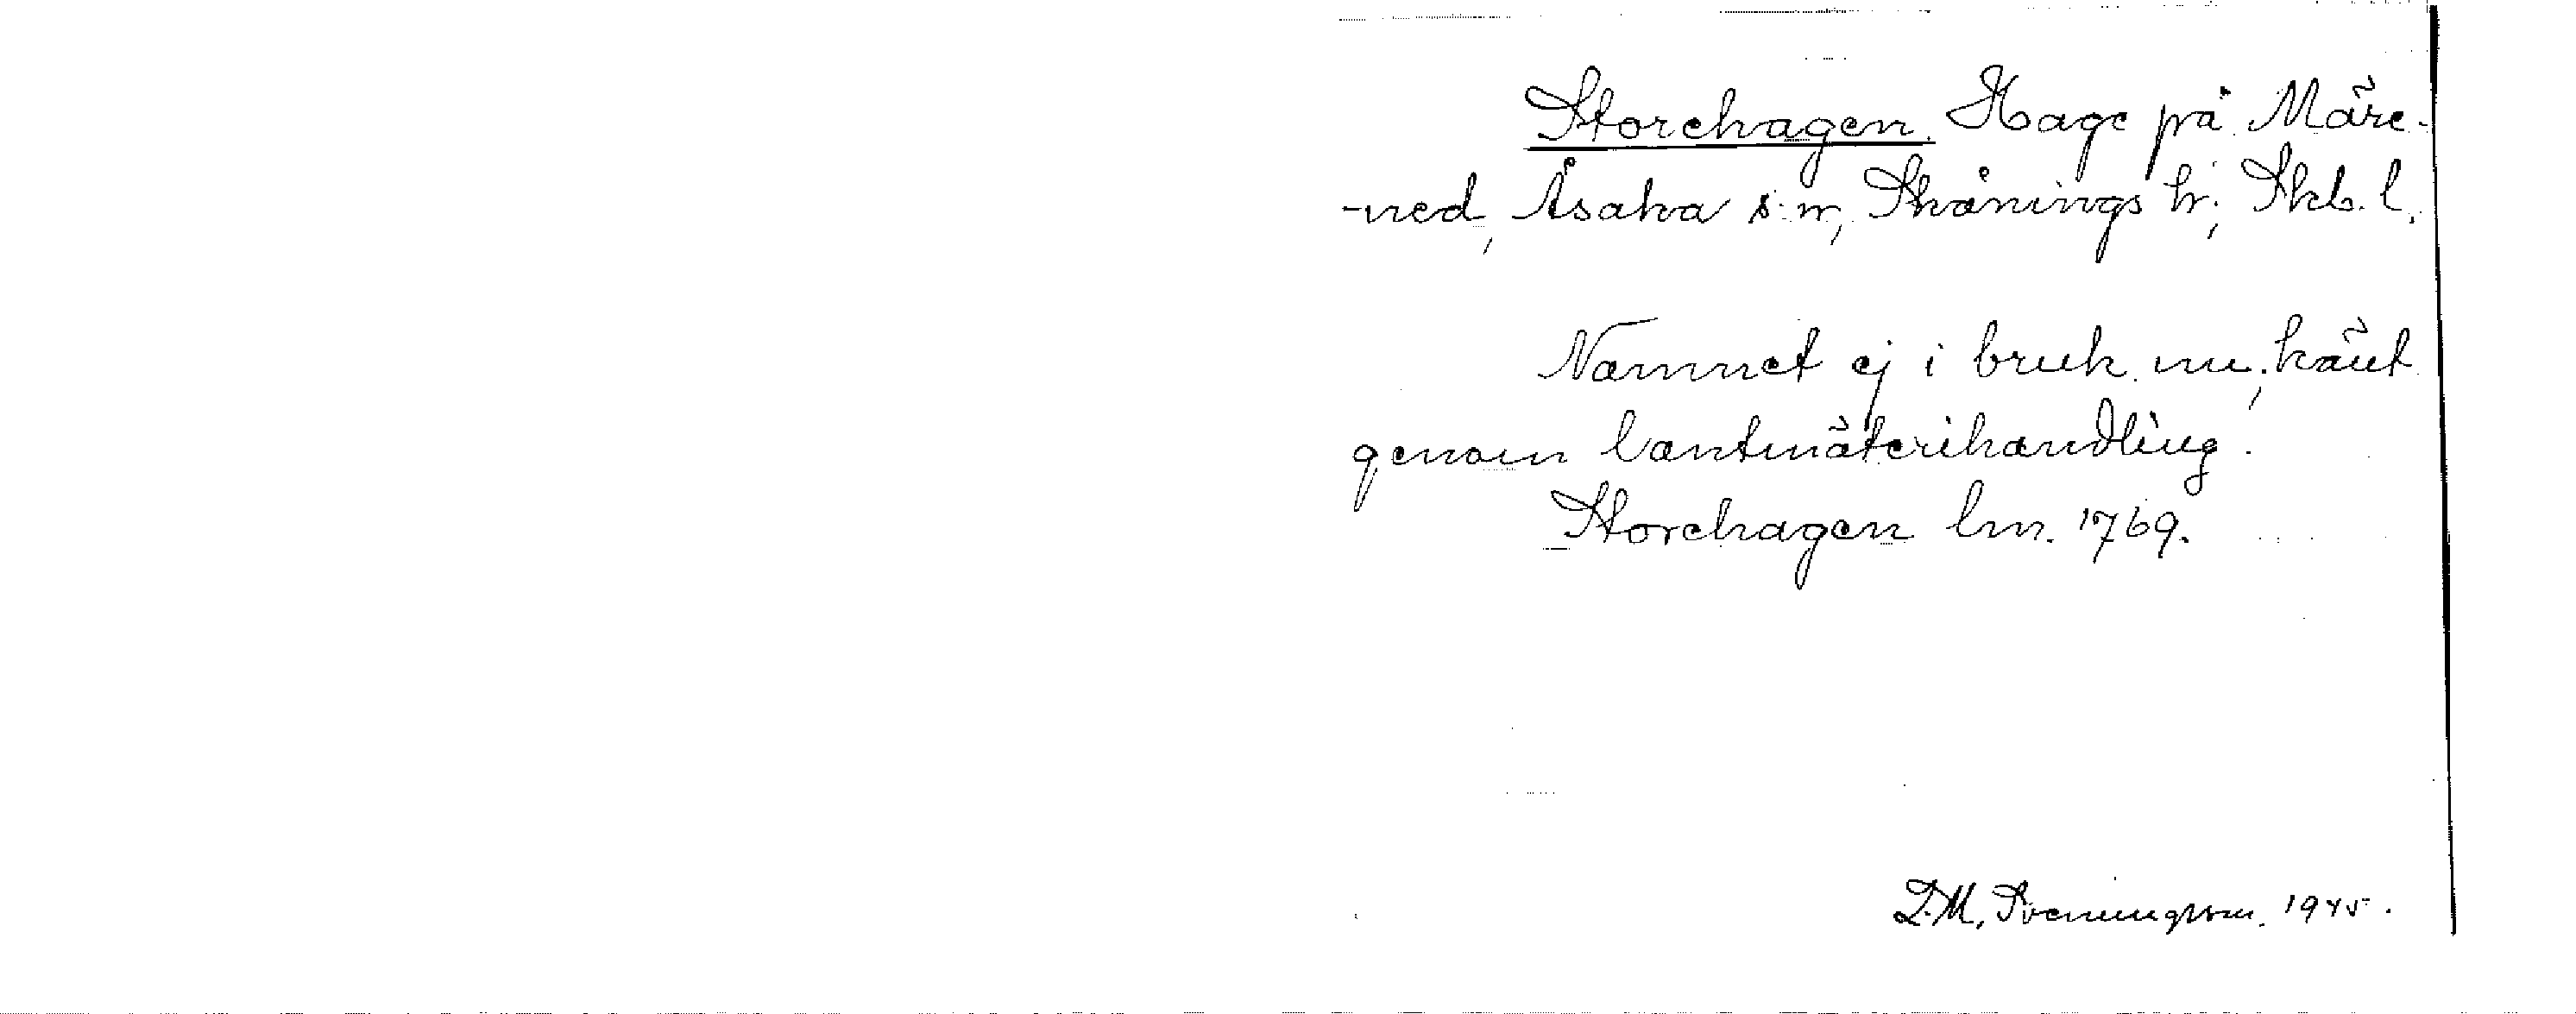 Storehagen. Hage på Märe-
-ned, Åsaka s:n, Skånings hr; Skb. l.
Namnet ej i bruk nu, känt
genom lantmäterihandling.
Storehagen lm. 1769.
D.M. Sveningsson. 1945.